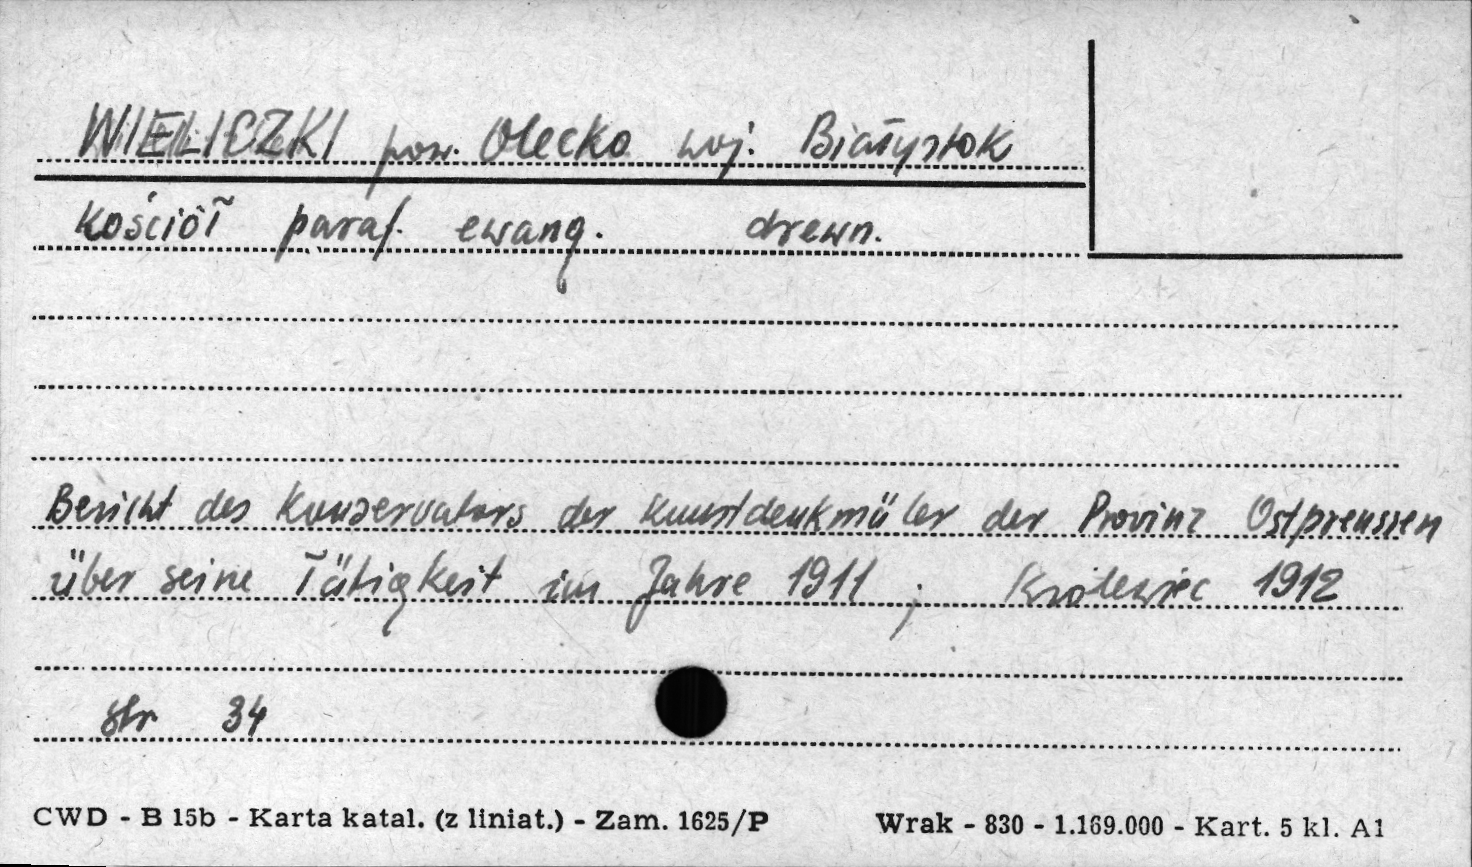 WIELICZKI pow. Olecko woj. Białystok
kościół paraf. ewang. drewn.
Bericht des Konservators der Kunstdenkmäler der Provinz Ostpreussen
über seine Tätigkeit im Jahre 1911 ; Królewiec 1912
str 34
CWD - B 15b - Karta katal. (z liniat.) - Zam. 1625/P Wrak - 830 - 1.169.000 - Kart. 5 kl. A1